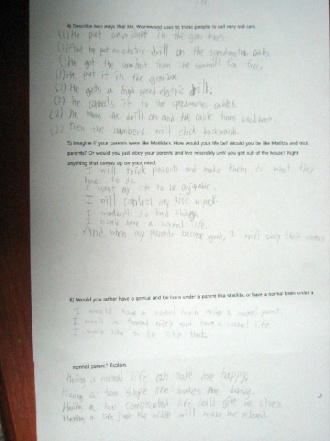 4) Describe two ways that Mr. Wormwood uses to trick people to sell very old cars.
(1) He put sawdust in the gear boxes.
(2) First he put an electric drill on the speedometer cable.
(1) He got the sawdust from the sawmill for free.
(1) He put it in the gearbox.
(2) He gets a high speed electric drill.
(2) He connects it to the speedometer cable.
(2) He turns the drill on and the cable turns backwards.
(2) Then the numbers will click backwards.
5) Imagine if your parents were like Matilda's. How would your life be? Would you be like Matilda and trick
parents? Or would you just obey your parents and live miserably until you got out of the house? Right
anything that comes up on your mind.
I will trick parents and make them do what they
have to do.
I want my life to be enjoyable.
I will control my life myself.
I wouldn't do bad things.
I would have a normal life.
And when my parents become good, I will obey their orders.
6) Would you rather have a genius and be born under a parent like Matilda, or have a normal brain under a
I would have a normal brain under a normal parent.
I would have a normal life
I would like to be like that.
normal parent? Explain.
Having a normal life can make me happy.
Having a too simple life makes me bored.
Having a too complicated life could give me stress.
Having a life just the middle will make me relaxed.